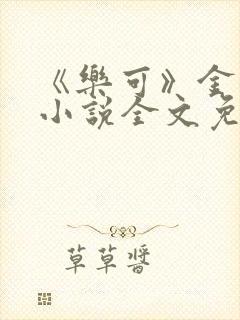 《樂可》金
小說全文免
草草醬